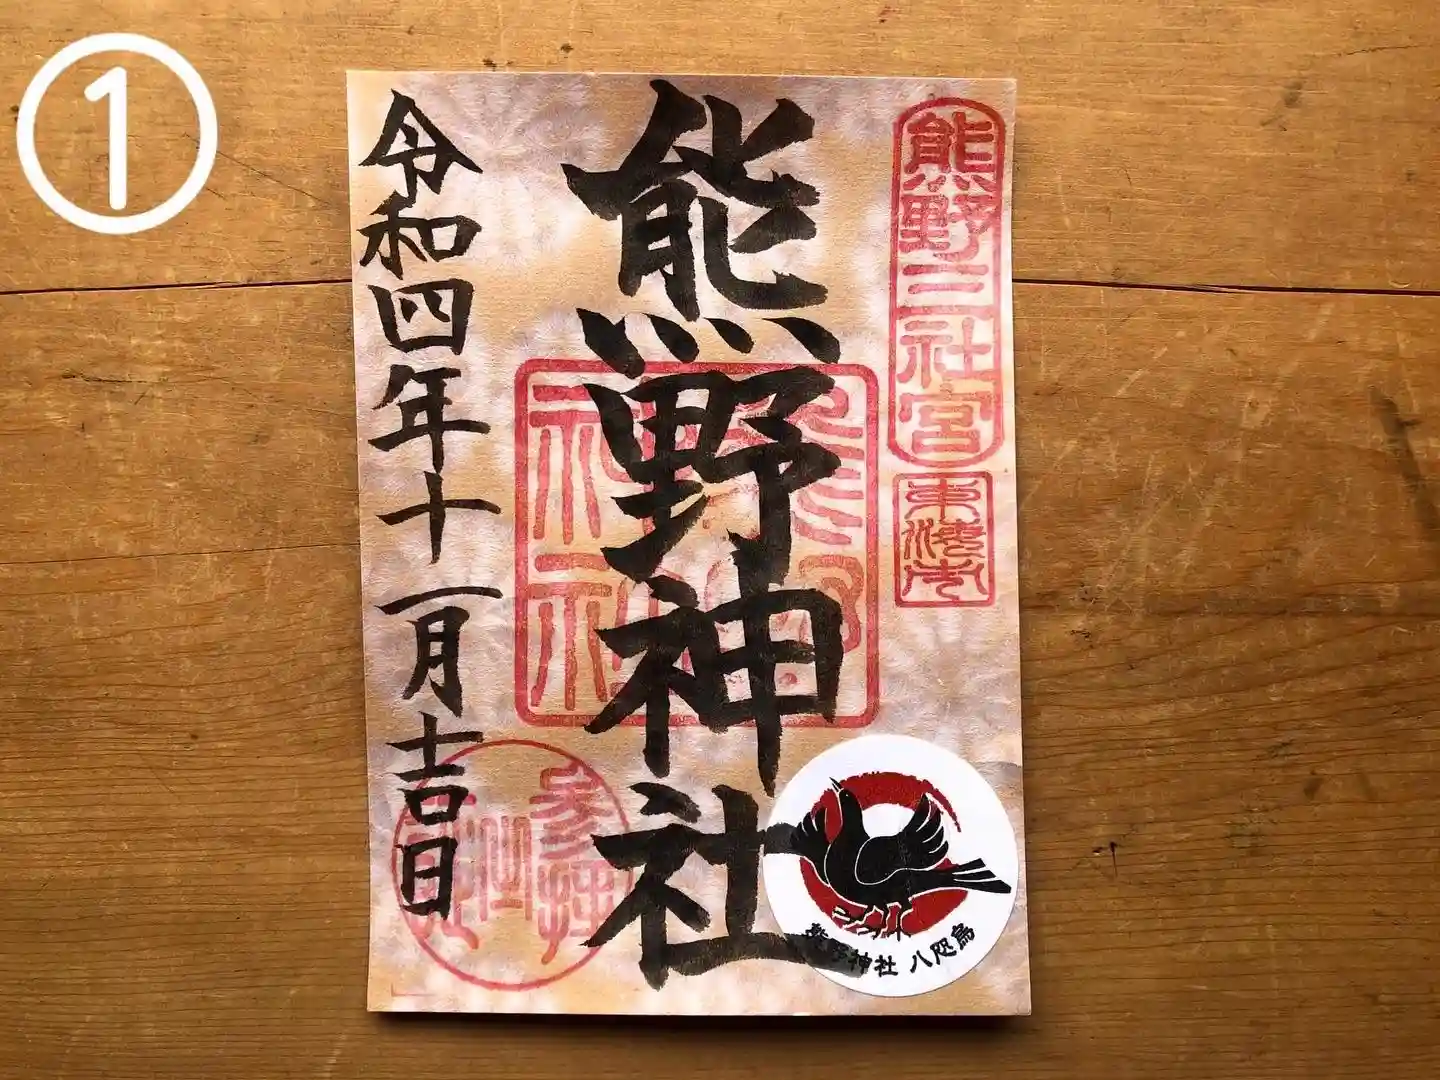 ①
熊野三社宮
熊野神社
令和四年十一月吉日
熊野神社 八咫烏